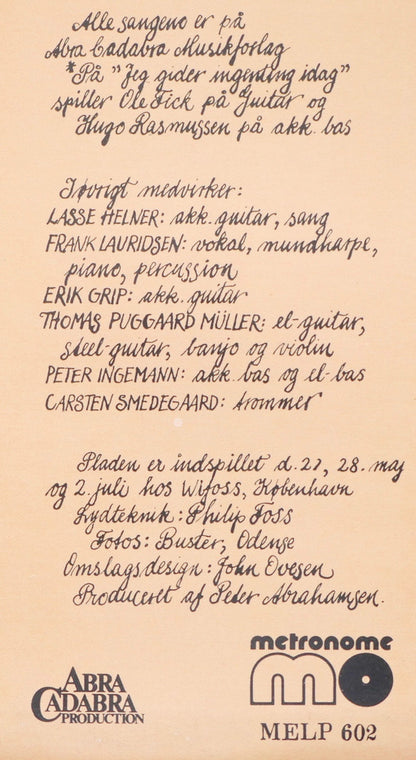 Alle sangene er på
Abra Cadabra Musikforlag
*På "Jeg gider ingenting idag"
spiller Ole Fick på Guitar og
Hugo Rasmussen på akk. bas
Iøvrigt medvirker:
LASSE HELNER: akk. guitar, sang
FRANK LAURIDSEN: vokal, mundharpe,
piano, percussion
ERIK GRIP: akk. guitar
THOMAS PUGGAARD MÜLLER: el-guitar,
steel-guitar, banjo og violin
PETER INGEMANN: akk. bas og el-bas
CARSTEN SMEDEGAARD: trommer
Pladen er indspillet d. 27, 28. maj
og 2. juli hos Wifoss, København
Lydteknik: Philip Foss
Fotos: Buster, Odense
Omslagsdesign: John Ovesen
Produceret af Peter Abrahamsen.
ABRA
CADABRA
PRODUCTION
metronome
mo
MELP 602